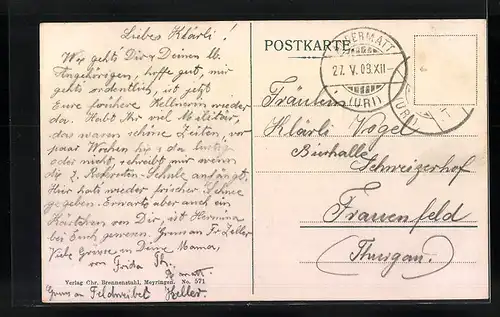 Liebes Klärli!
Wie gehts Dir & Deinen lb.
Angehörigen, hoffe gut, mir
gehts ordentlich, ist jetzt
Eure frühere Kellnerin wieder
da. Habt Ihr viel Militär,
das waren schöne Zeiten, vor
paar Wochen his & da lustig
oder nicht, schreibt mir wenn
die 2. Rekruten-Schule anfängt.
Hier hats wieder frischer Schnee
gegeben. Erwarte aber auch ein
Kärtchen von Dir, ist Hermina
bei Euch gewesen. Gruss an Fr. Zeller
Viele Grüsse an Deine Mama,
von Frida Th.
Gruss an Feldweibel Keller.
Verlag Chr. Brennenstuhl, Meyringen. No. 571
POSTKARTE
ANDERMATT
27. V. 09. XII-
(URI)
(URI)
Fräulein
Klärli Vogel
Bierhalle
Schweizerhof
Frauenfeld
Thurgau.